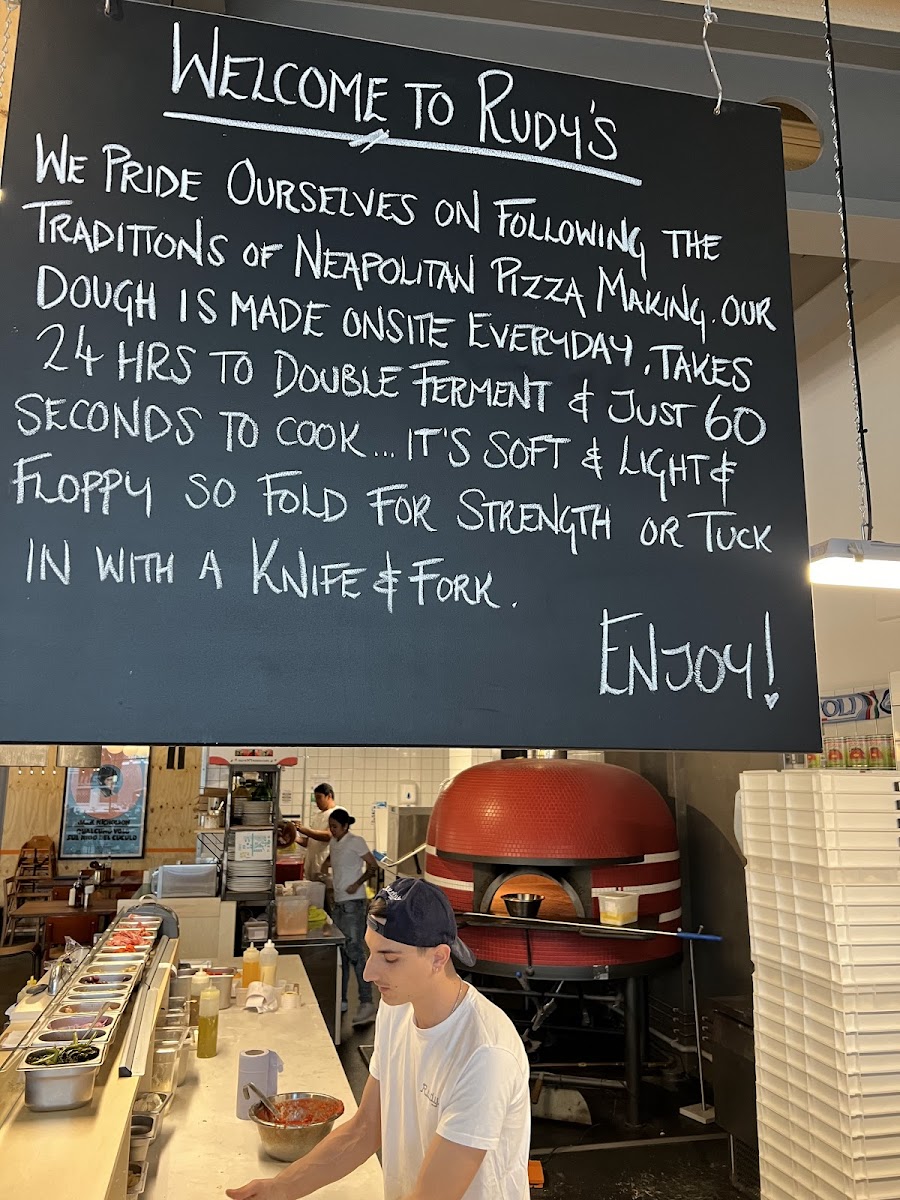 WELCOME TO RUDY'S
WE PRIDE OURSELVES ON FOLLOWING THE
TRADITIONS OF NEAPOLITAN PIZZA MAKING. OUR
DOUGH IS MADE ONSITE EVERYDAY, TAKES
24 HRS TO DOUBLE FERMENT & JUST 60
SECONDS TO COOK... IT'S SOFT & LIGHT &
FLOPPY SO FOLD FOR STRENGTH OR TUCK
IN WITH A KNIFE & FORK.
ENJOY!
JACK NICHOLSON
QUALCUNO VOLO
SUL NIDO DEL CUCULO
Rudy's